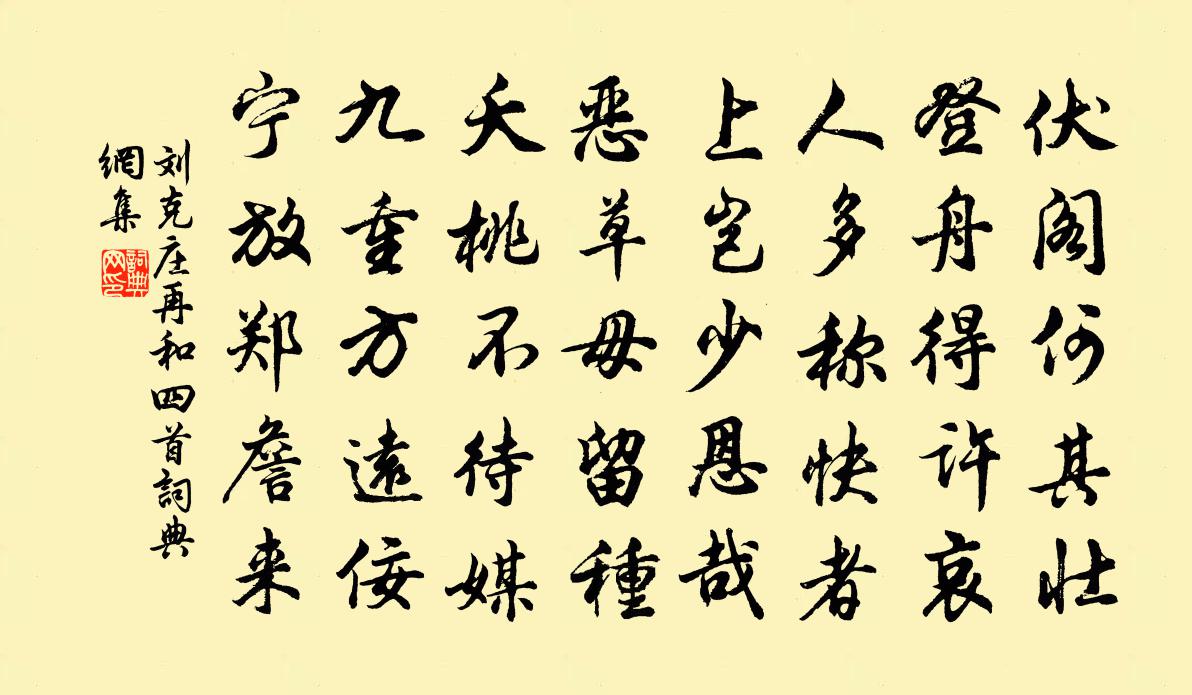 伏阁何其壮
登舟得许哀
人多称快者
上岂少恩哉
恶草毋留種
夭桃不待媒
九重方遠佞
宁放郑詹来
刘克庄再和四首詞典
網集
詞典
网印